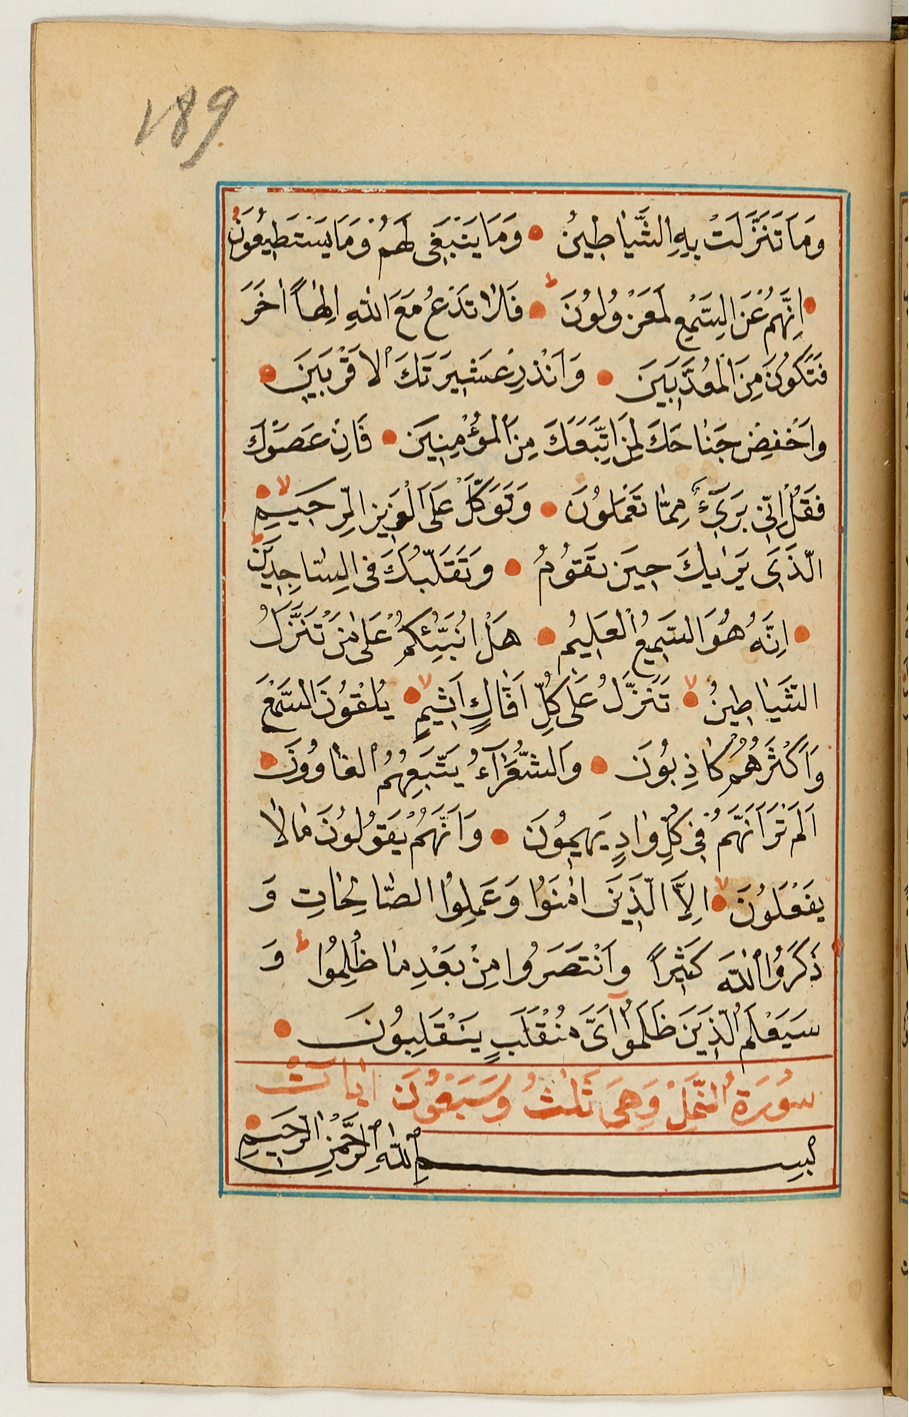 189
وَمَا تَنَزَّلَتْ بِهِ الشَّيَاطِينُ وَمَا يَنْبَغِي لَهُمْ وَمَا يَسْتَطِيعُونَ
اِنَّهُمْ عَنِ السَّمْعِ لَمَعْزُولُونَ ط فَلَا تَدْعُ مَعَ اللّٰهِ اِلٰهًا اٰخَرَ
فَتَكُونَ مِنَ الْمُعَذَّبِينَ وَاَنْذِرْ عَشِيرَتَكَ الْاَقْرَبِينَ
وَاخْفِضْ جَنَاحَكَ لِمَنِ اتَّبَعَكَ مِنَ الْمُؤْمِنِينَ فَاِنْ عَصَوْكَ
فَقُلْ اِنِّي بَرِيٓءٌ مِمَّا تَعْمَلُونَ وَتَوَكَّلْ عَلَى الْعَزِيزِ الرَّحِيمِ لا
الَّذِي يَرٰيكَ حِينَ تَقُومُ وَتَقَلُّبَكَ فِي السَّاجِدِينَ ط
اِنَّهُ هُوَ السَّمِيعُ الْعَلِيمُ هَلْ اُنَبِّئُكُمْ عَلٰى مَنْ تَنَزَّلُ
الشَّيَاطِينُ لا تَنَزَّلُ عَلٰى كُلِّ اَفَّاكٍ اَثِيمٍ لا يُلْقُونَ السَّمْعَ
وَاَكْثَرُهُمْ كَاذِبُونَ وَالشُّعَرَآءُ يَتَّبِعُهُمُ الْغَاوُونَ
اَلَمْ تَرَ اَنَّهُمْ فِي كُلِّ وَادٍ يَهِيمُونَ وَاَنَّهُمْ يَقُولُونَ مَا لَا
يَفْعَلُونَ لا اِلَّا الَّذِينَ اٰمَنُوا وَعَمِلُوا الصَّالِحَاتِ وَ
ذَكَرُوا اللّٰهَ كَثِيرًا وَانْتَصَرُوا مِنْ بَعْدِ مَا ظُلِمُوا ط وَ
سَيَعْلَمُ الَّذِينَ ظَلَمُٓوا اَيَّ مُنْقَلَبٍ يَنْقَلِبُونَ
سُورَةُ النَّمْلِ وَهِيَ ثَلٰثُ وَسَبْعُونَ اٰيَاتٌ
بِسْمِ اللّٰهِ الرَّحْمٰنِ الرَّحِيمِ